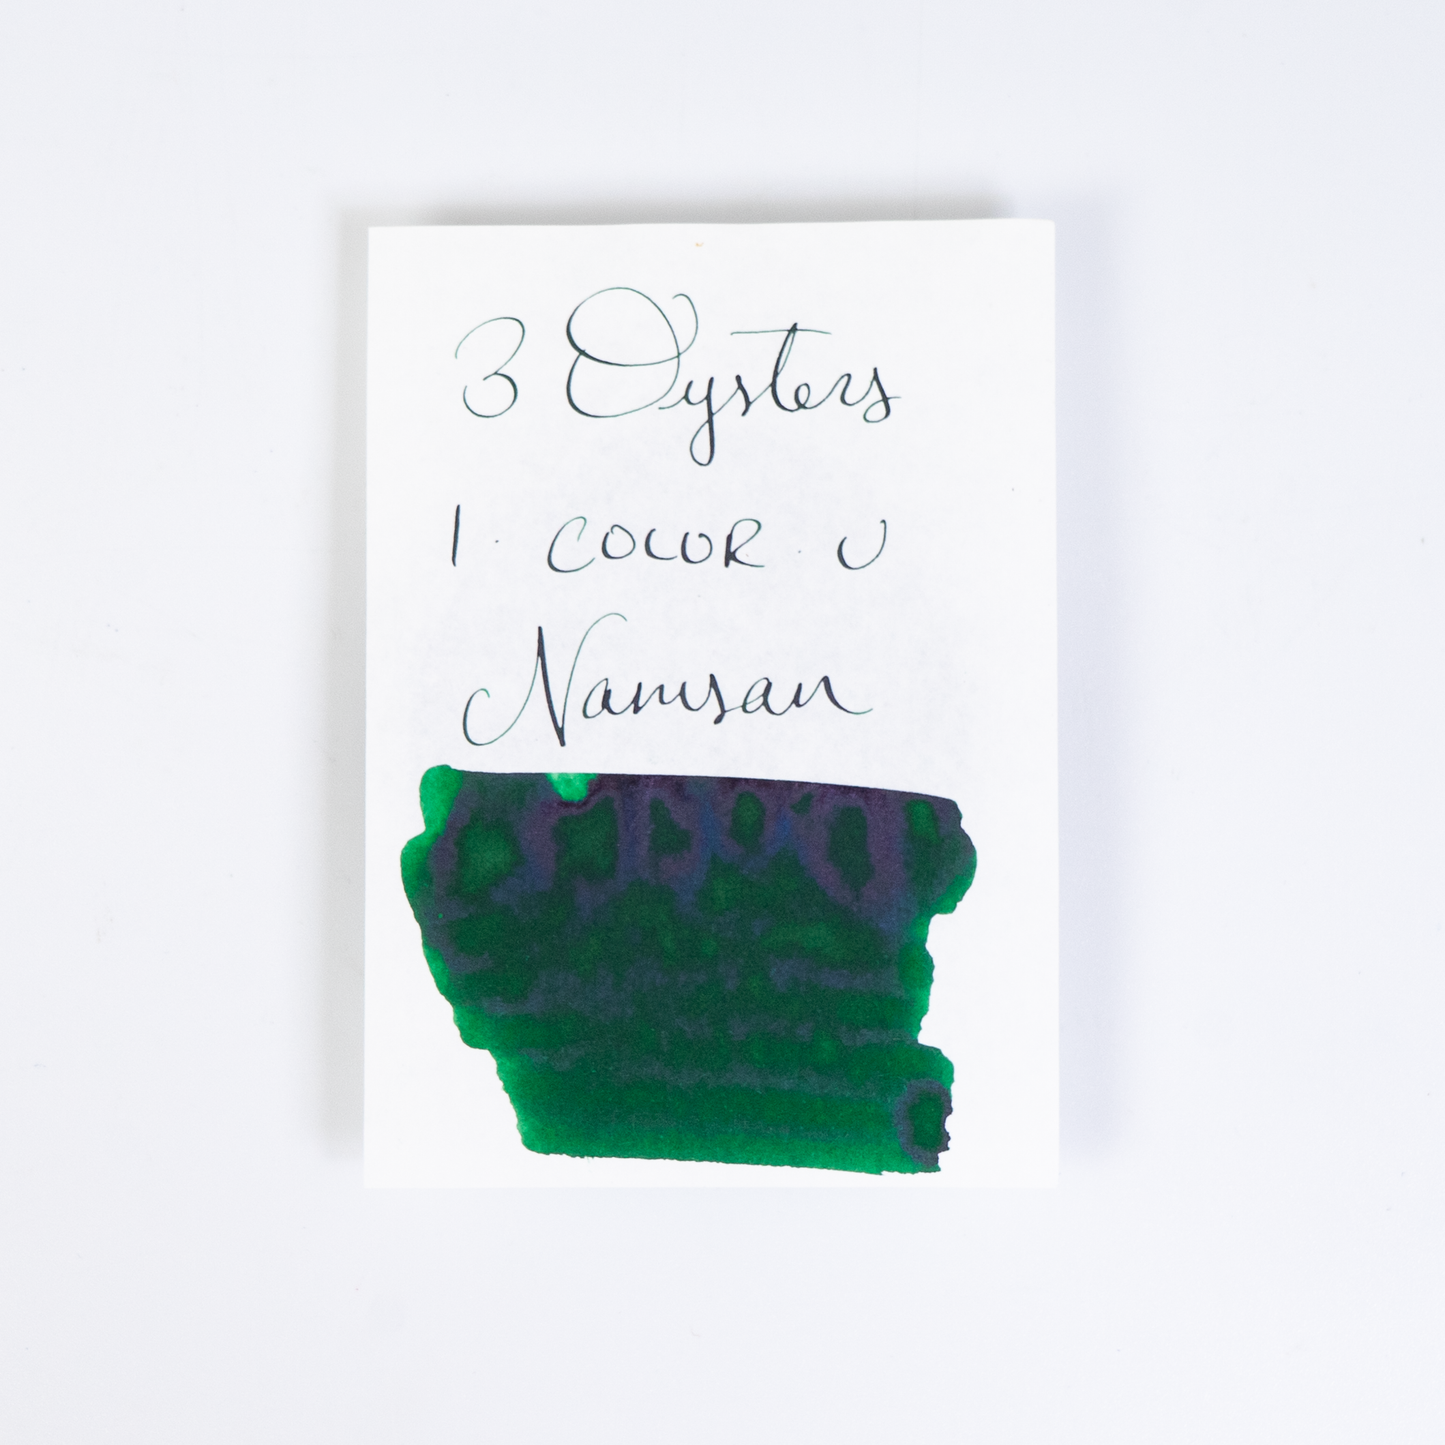 3 Oysters
I · COLOR · U
Namsan